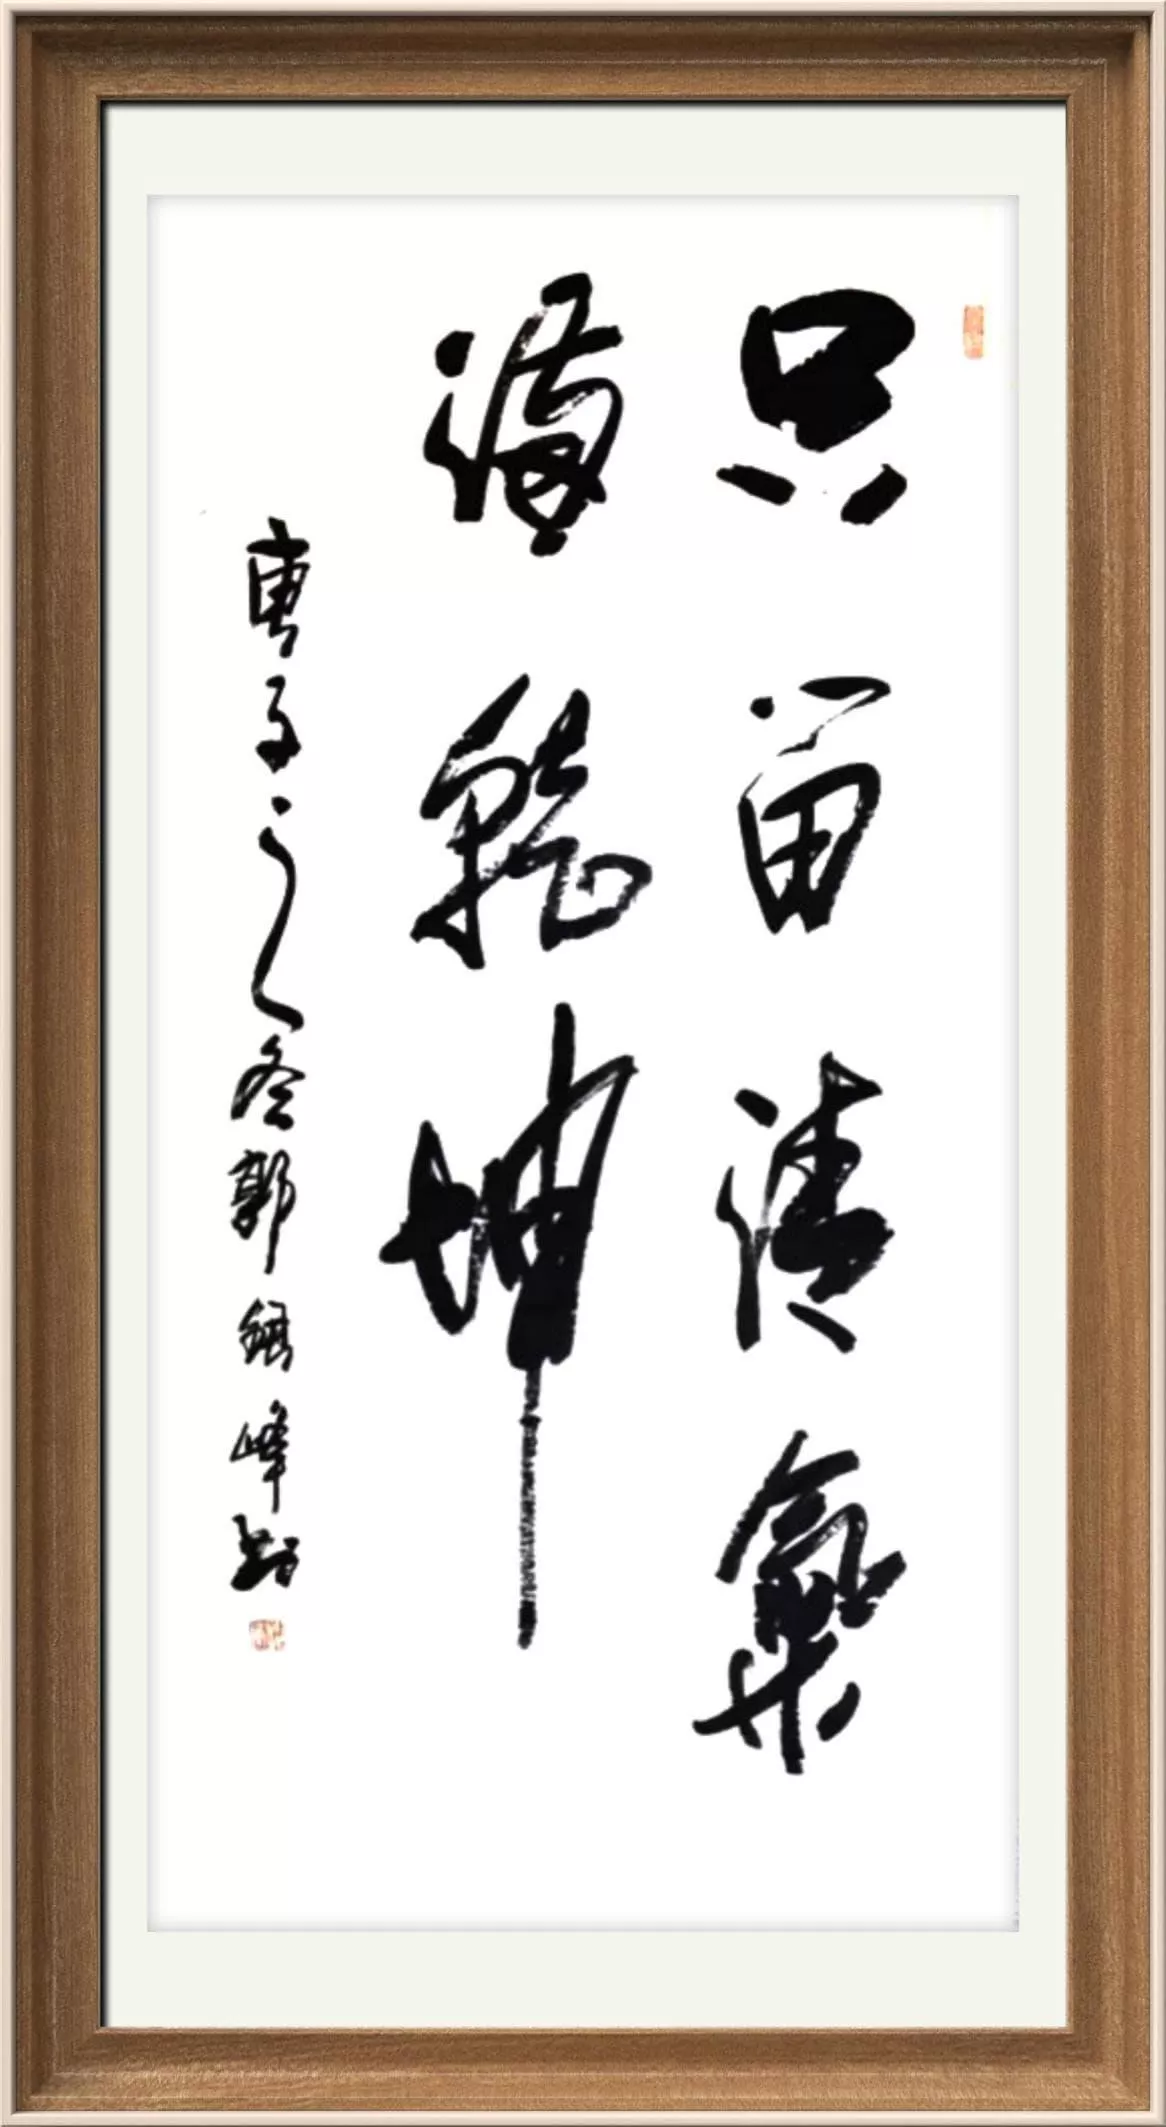 只留清氣
滿乾坤
庚子之冬郭峰书